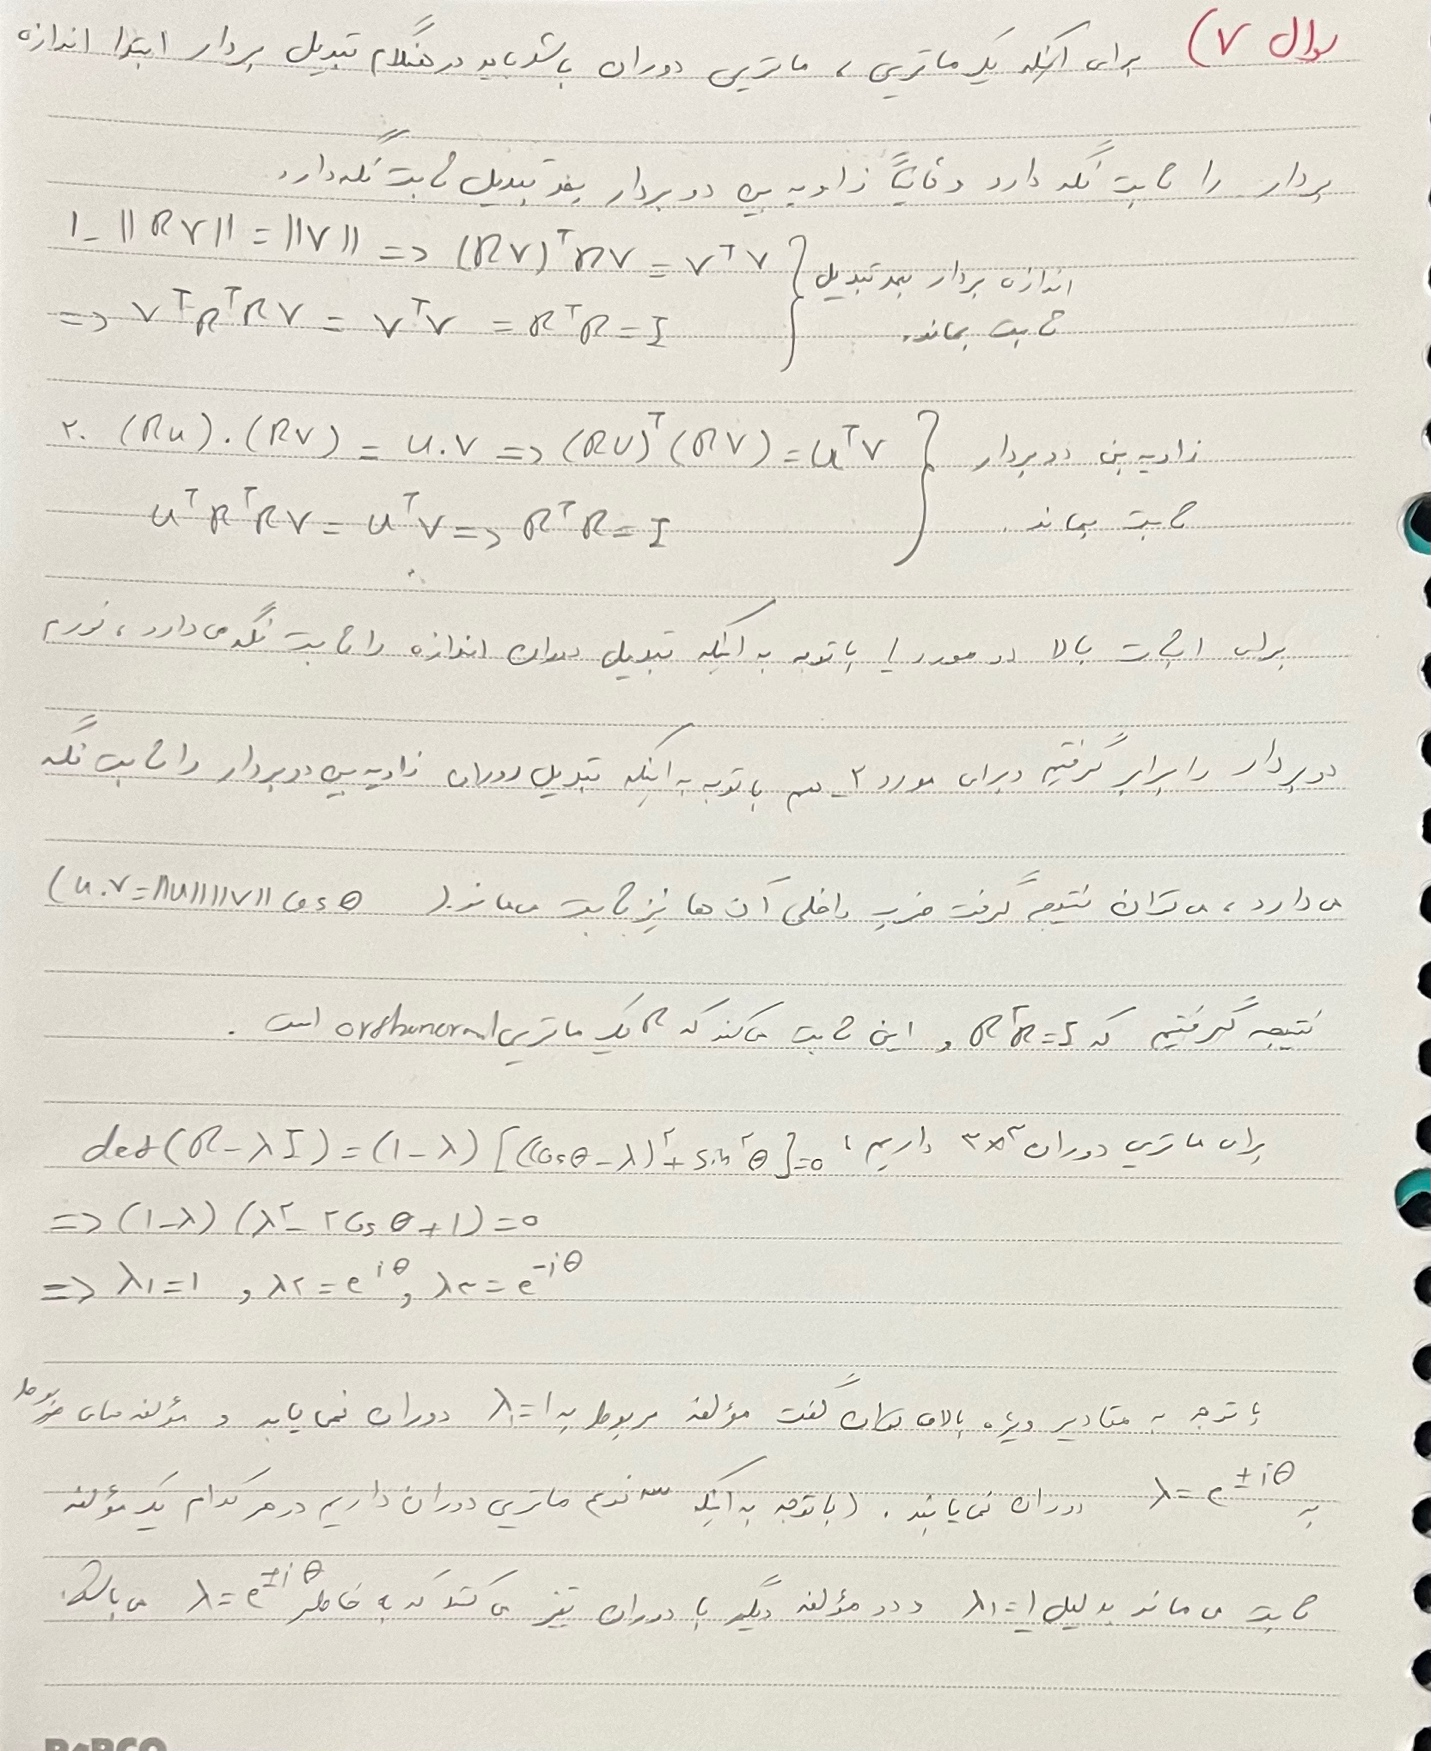 سوال ۷) برای اینکه یک ماتریس، ماتریس دوران باشد باید در هنگام تبدیل بردار ابتدا اندازه
بردار را ثابت نگه دارد و ثانیاً زاویه بین دو بردار بعد تبدیل ثابت نگه دارد.
1_ ||RV|| = ||V|| => (RV)ᵀRV = VᵀV } اندازه بردار بعد تبدیل
=> VᵀRᵀRV = VᵀV = RᵀR = I } ثابت بماند.
۲. (Ru).(RV) = u.V => (RU)ᵀ(RV) = uᵀV } زاویه بین دو بردار
uᵀRᵀRV = uᵀV => RᵀR = I } ثابت بماند.
برای اثبات بالا در مورد ۱ با توجه به اینکه تبدیل دوران اندازه را ثابت نگه می دارد، نورم
دو بردار را برابر گرفتیم و برای مورد ۲_ هم با توجه به اینکه تبدیل دوران زاویه بین دو بردار را ثابت نگه
می دارد، می توان نتیجه گرفت ضرب داخلی آن ها نیز ثابت می ماند. (u.v=||u||||v|| Cos θ)
نتیجه گرفتیم که RᵀR=I و این ثابت می کند که R یک ماتریس orthonormal است.
برای ماتریس دوران ۳×۳ داریم: det(R-λI) = (1-λ)[(Cosθ-λ)²+Sin²θ]=0
=> (1-λ)(λ²-۲Cos θ+1)=0
=> λ₁=1 , λ₂=e^{iθ}, λ₃=e^{-iθ}
با توجه به مقادیر ویژه بالا می توان گفت مؤلفه مربوط به λ₁=1 دوران نمی یابد و مؤلفه های مربوط
به λ=e^{±iθ} دوران می یابند. (با توجه به اینکه سه نوع ماتریس دوران داریم در هر کدام یک مؤلفه
ثابت می ماند به دلیل λ₁=1 و دو مؤلفه دیگر با دوران تغییر می کنند که به خاطر λ=e^{±iθ} می باشد.
PAPCO